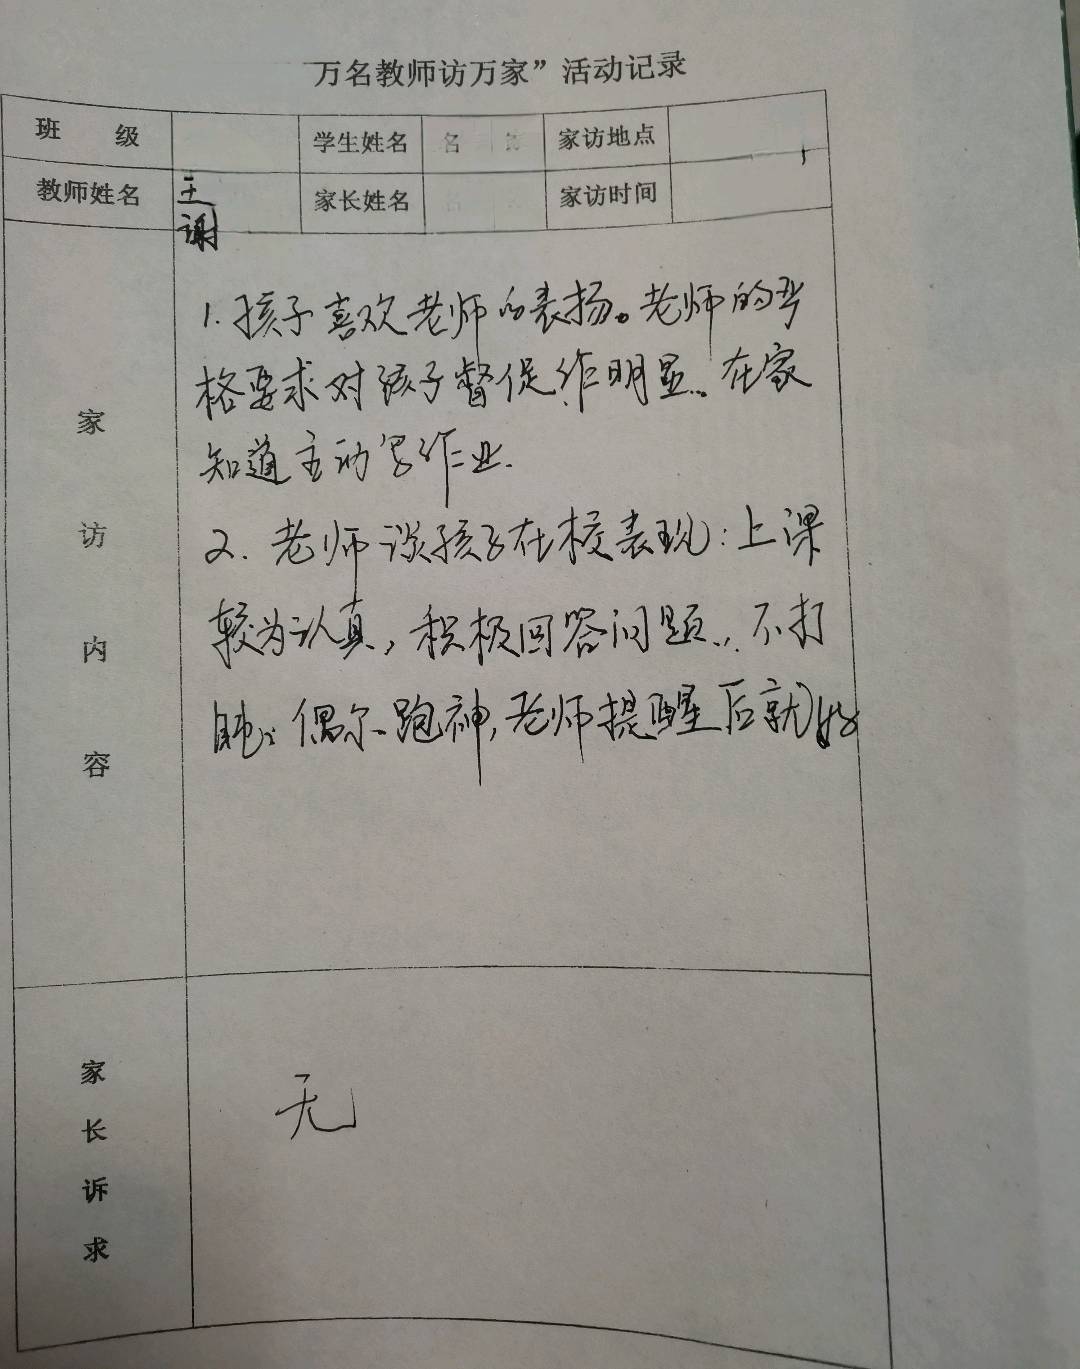 万名教师访万家”活动记录
班 级 学生姓名 家访地点
教师姓名 王 家长姓名 家访时间
谢
家访内容
1. 孩子喜欢老师的表扬。老师的严
格要求对孩子督促作明显。在家
知道主动写作业.
2. 老师谈孩子在校表现:上课
较为认真,积极回答问题.,不打
盹。偶尔跑神,老师提醒后就好
家长诉求
无